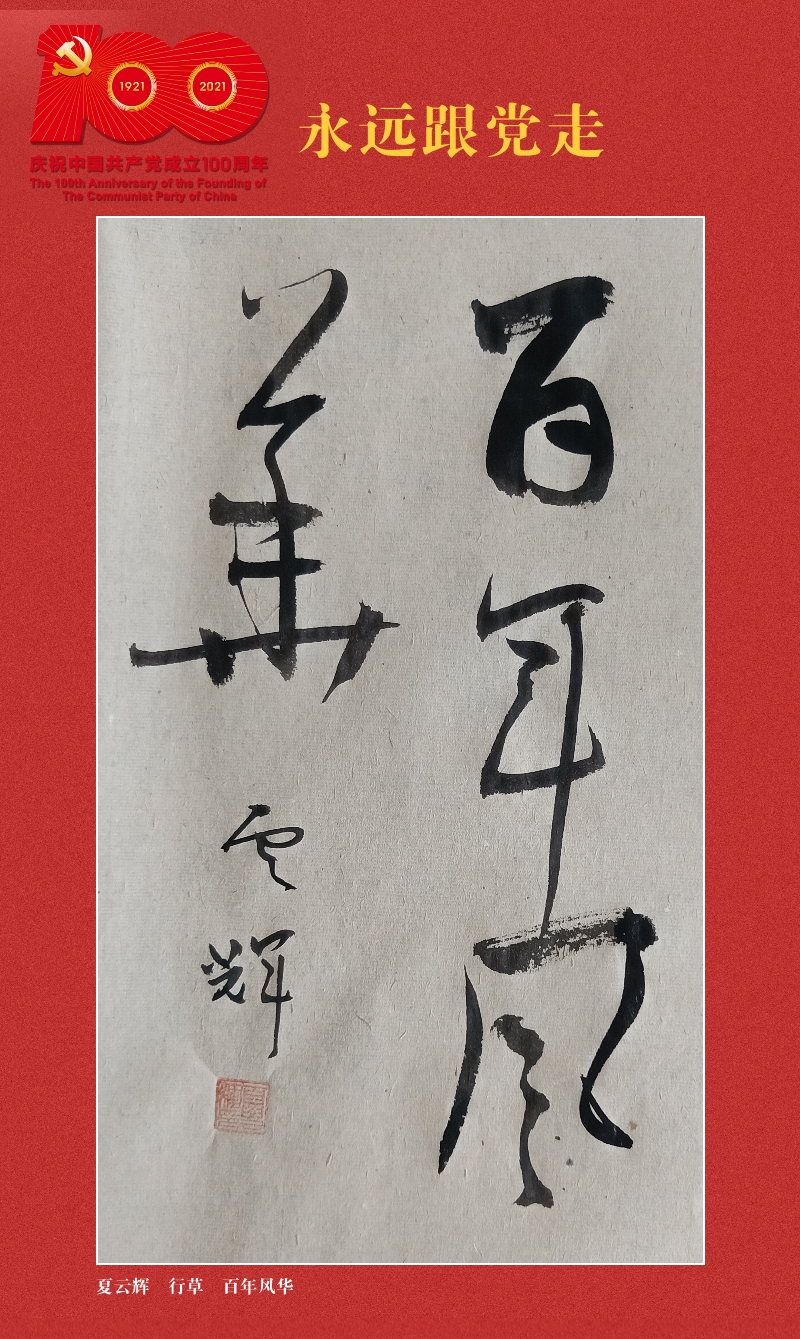 100
1921
2021
庆祝中国共产党成立100周年
The 100th Anniversary of the Founding of
The Communist Party of China
永远跟党走
百年风
華
雲輝
夏云辉 行草 百年风华